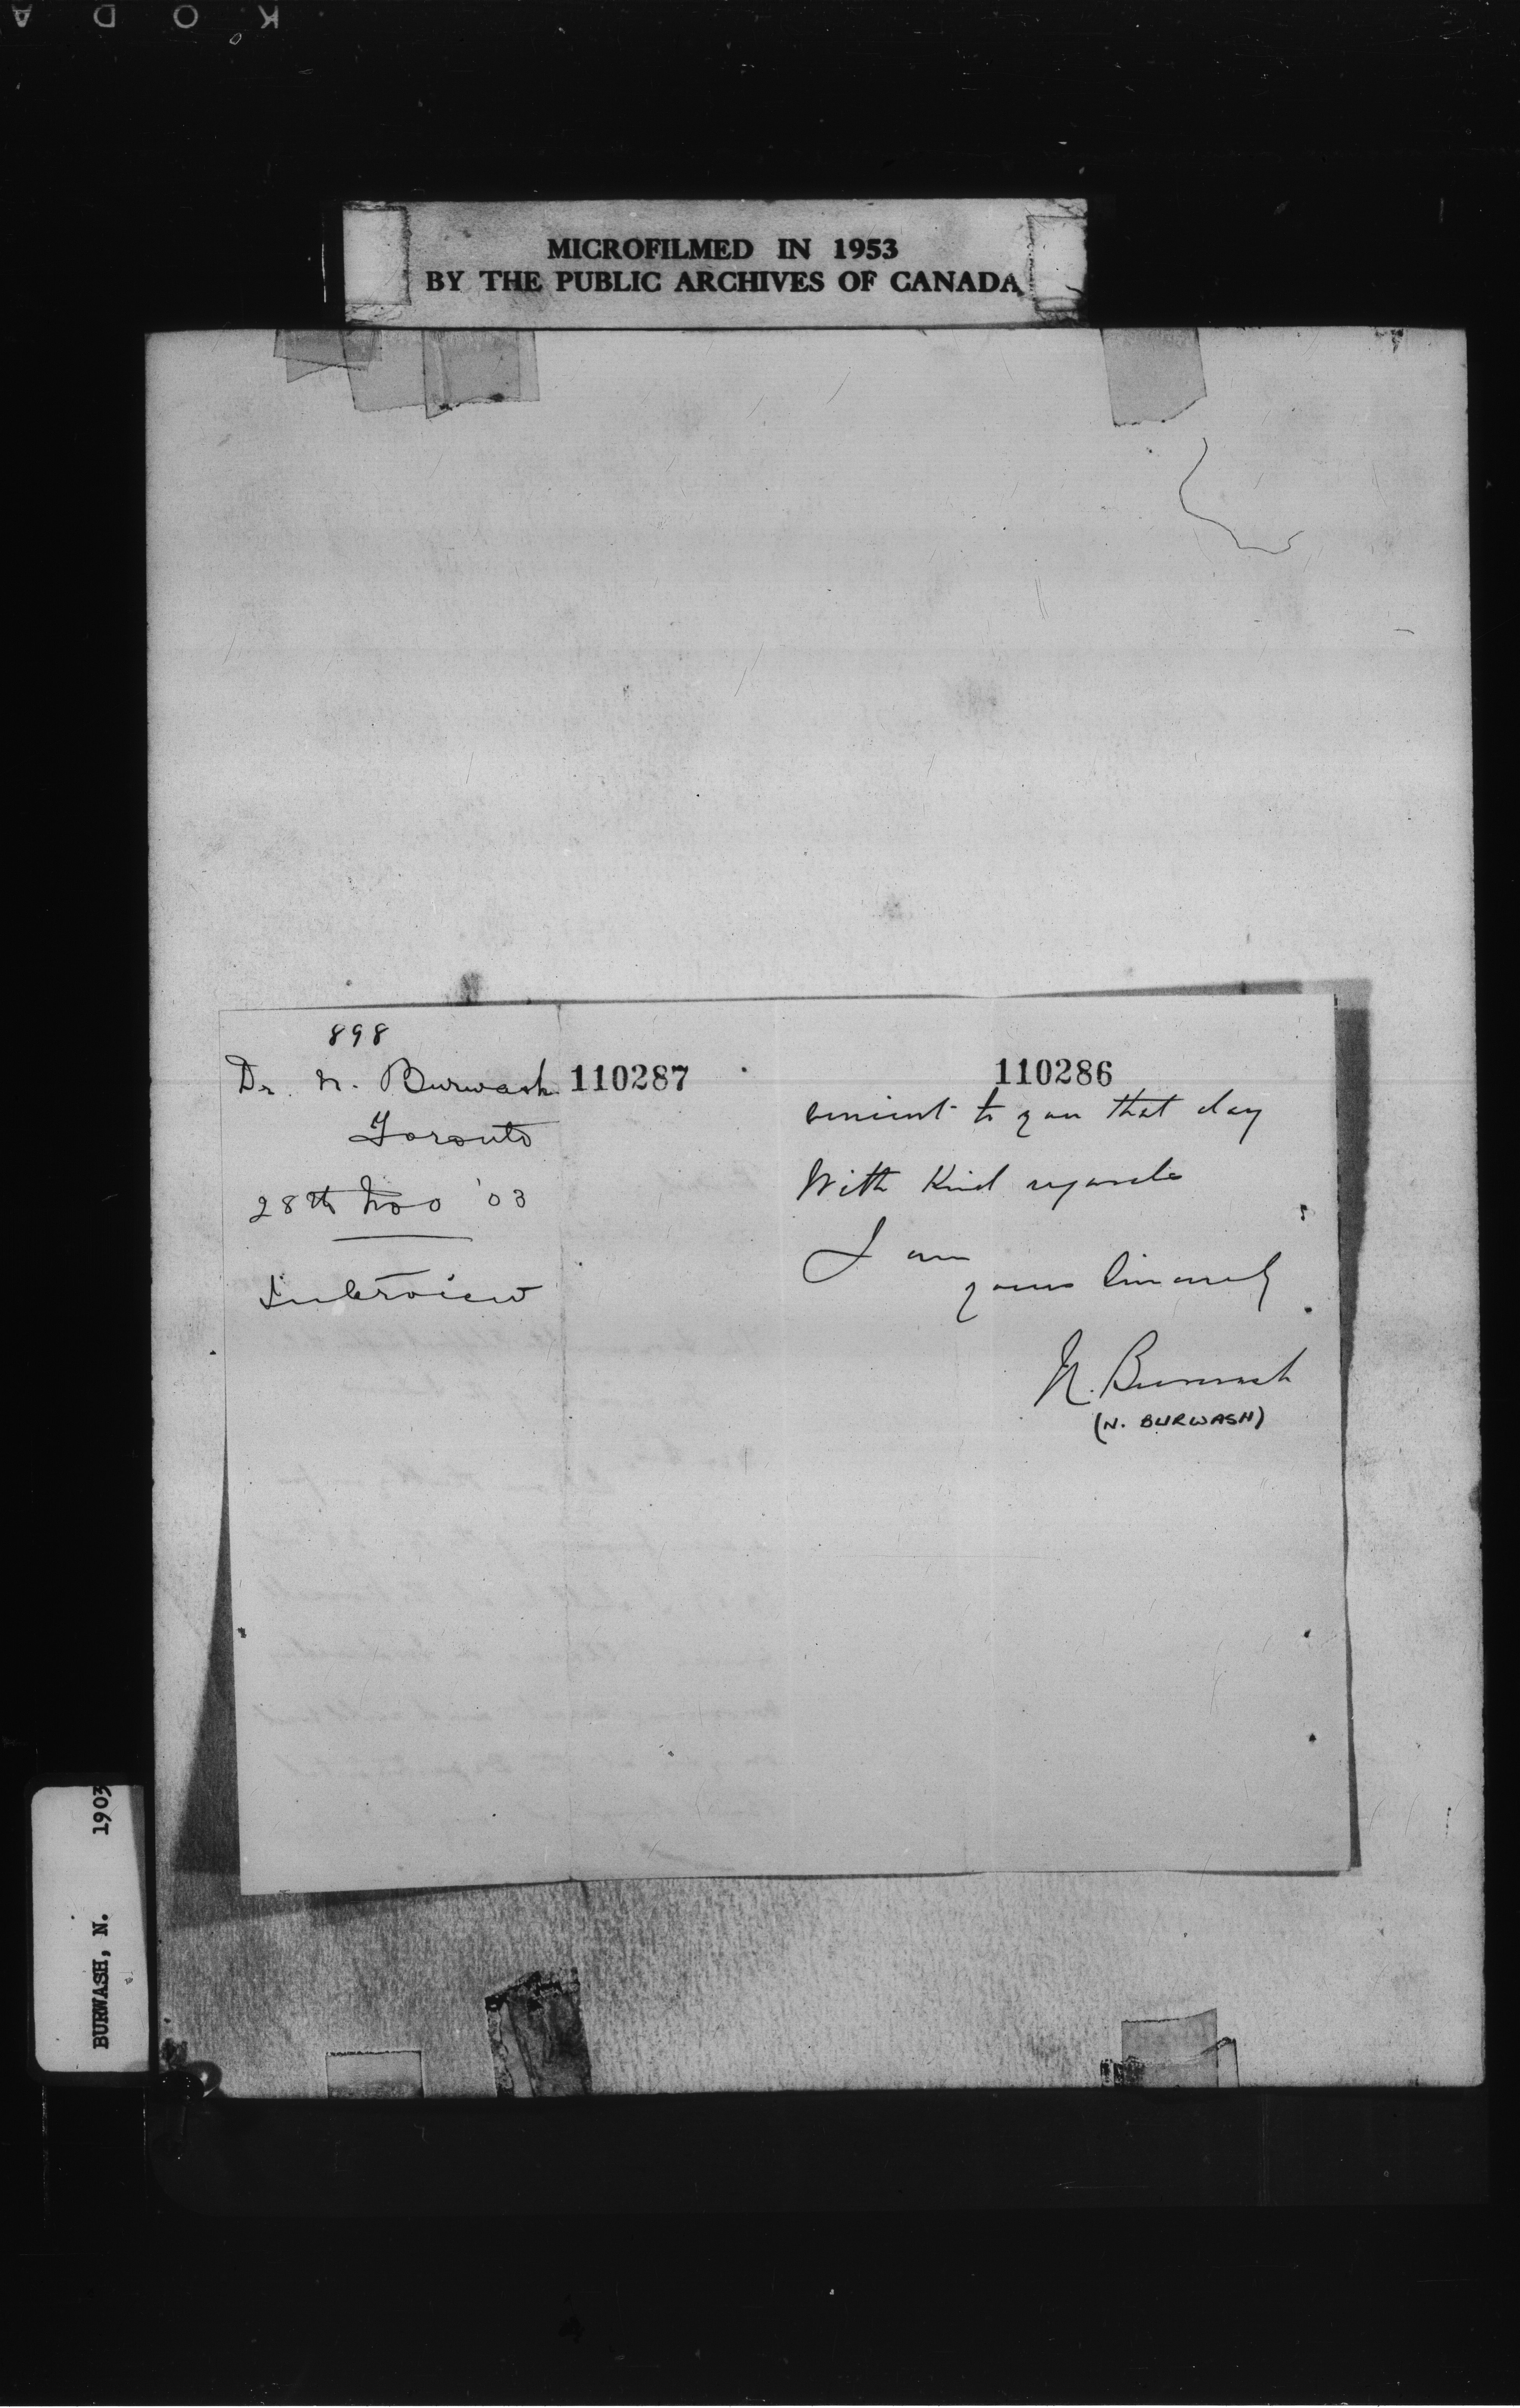 KODA
MICROFILMED IN 1953
BY THE PUBLIC ARCHIVES OF CANADA
898
Dr. N. Burwash
Toronto
28th Nov '03
Interview
110287
110286
venient to you that day
With Kind regards
I am
yours Sincerely
N. Burwash
(N. BURWASH)
BURWASH, N. 1903